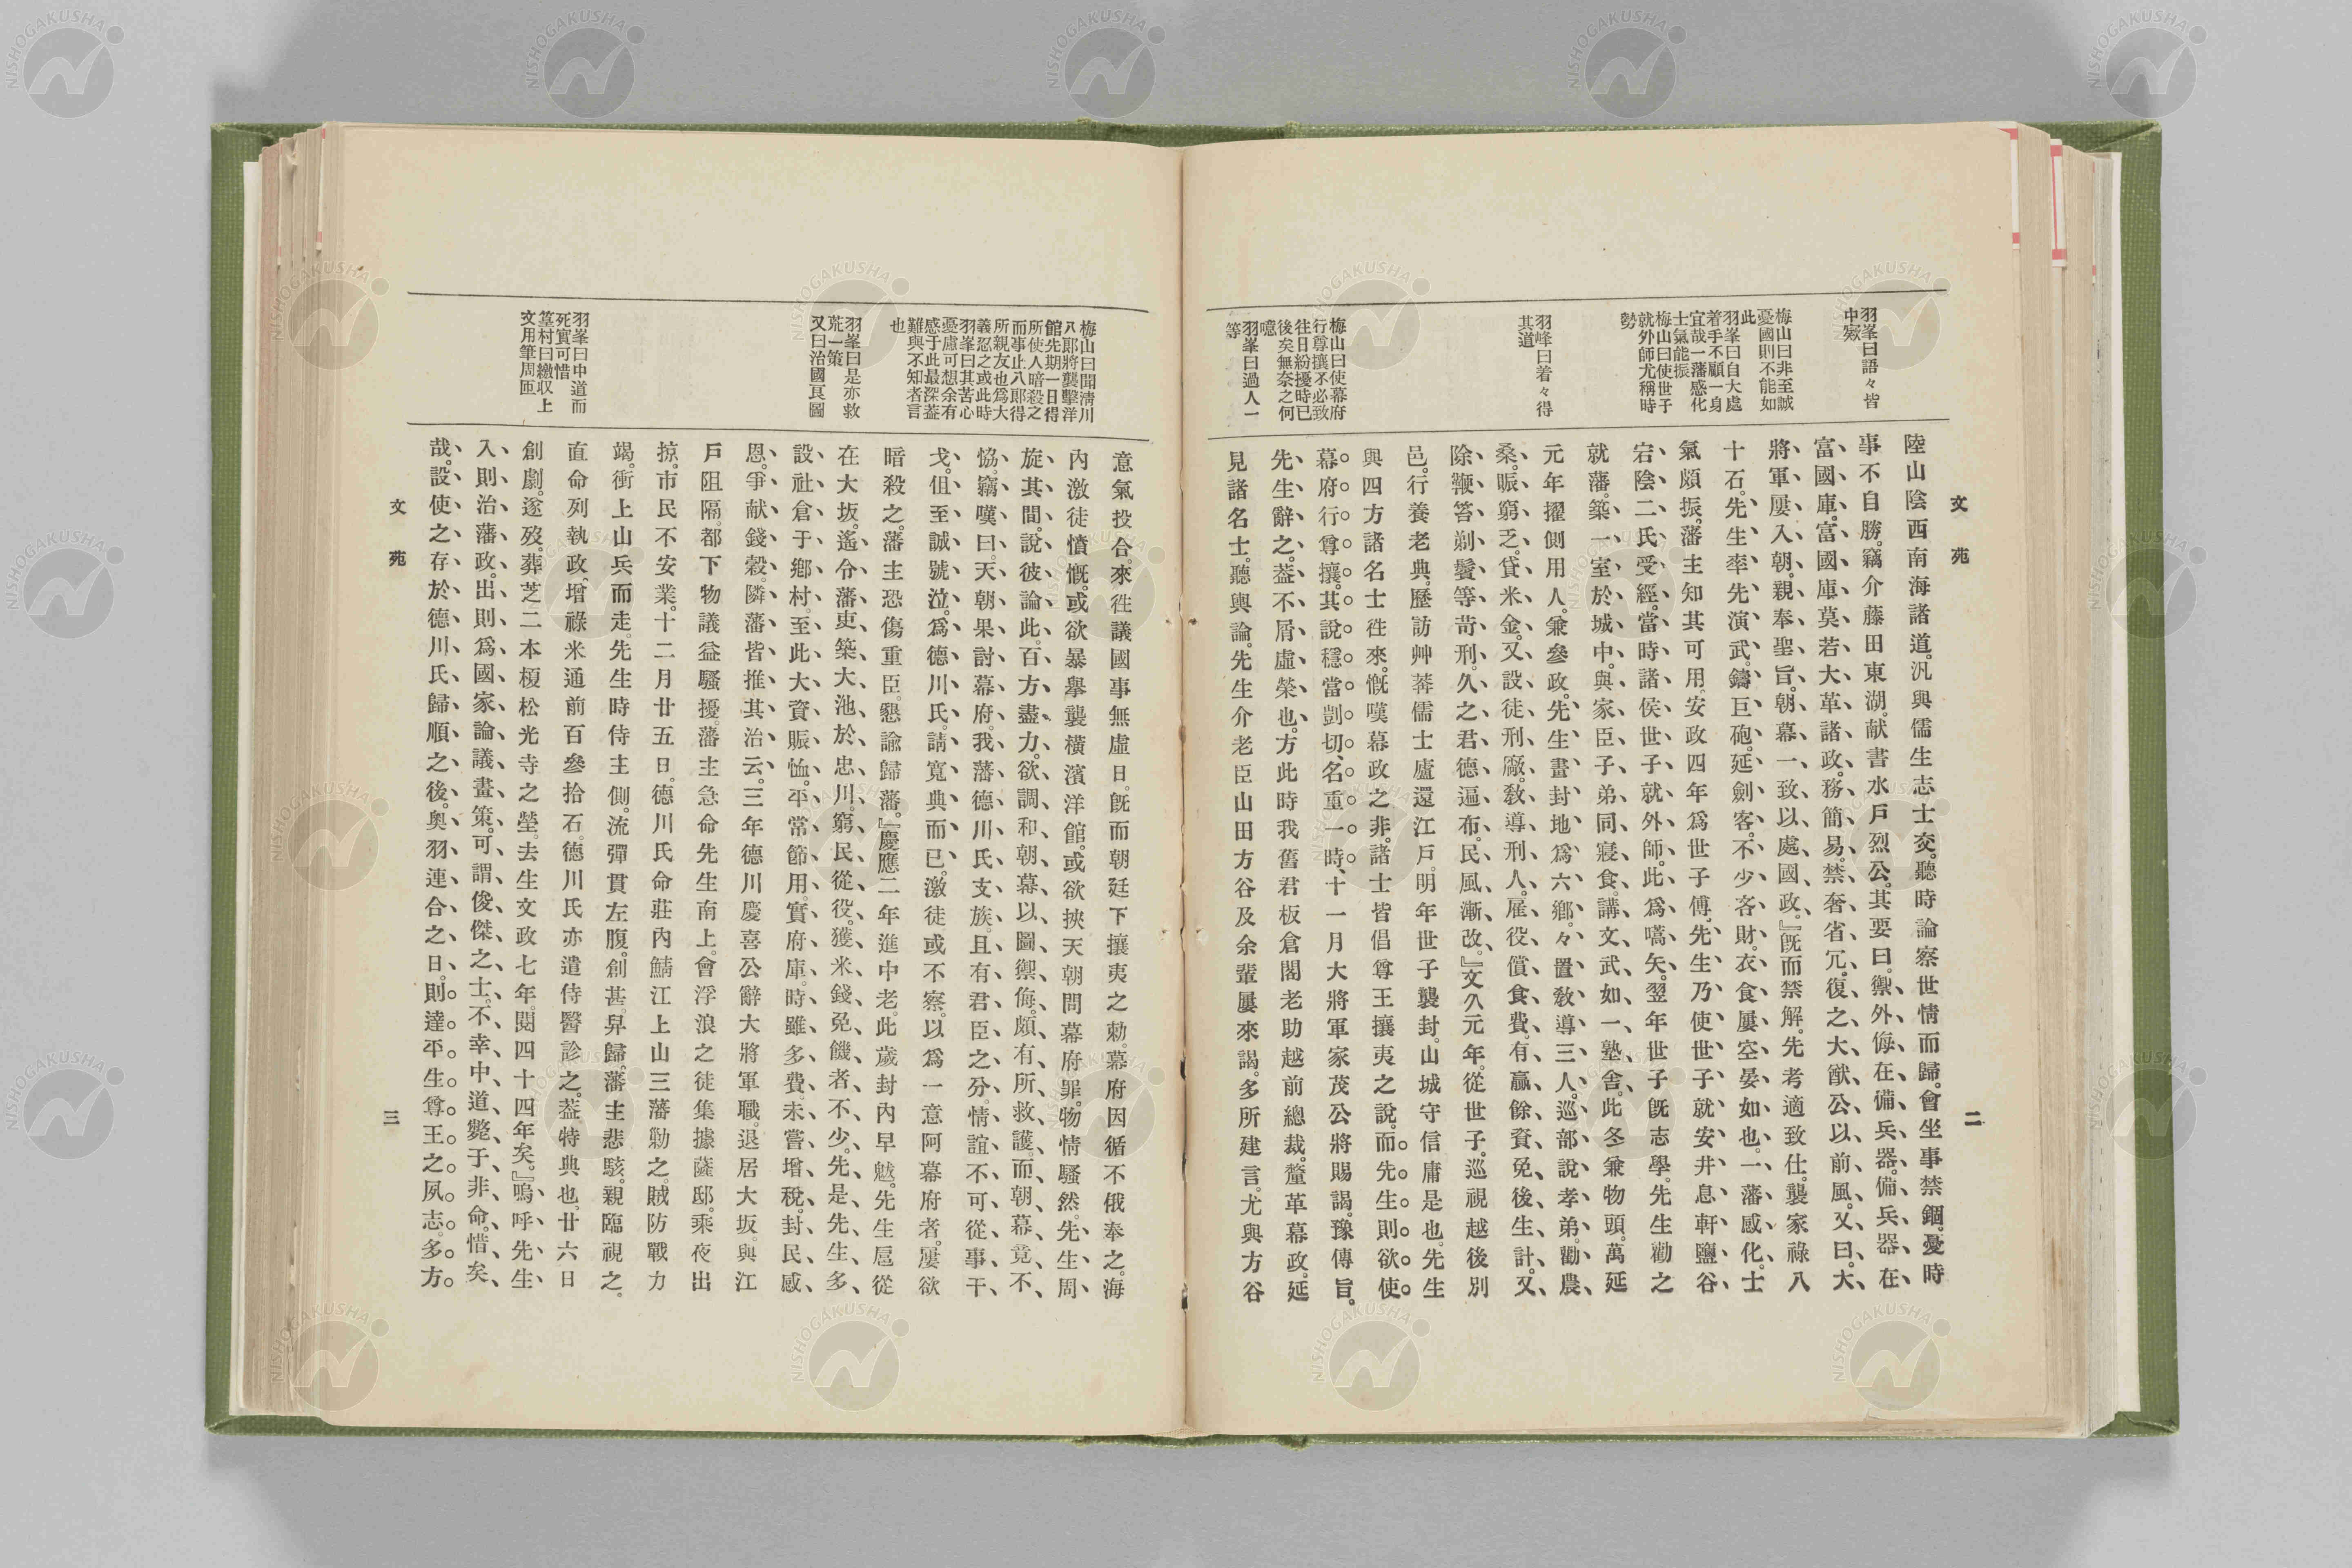 文苑
二
羽峯曰語々皆
中窾
梅山曰非至誠
憂國則不能如
此
羽峯曰自大處
着手不顧一身
宜哉一藩感化
士氣能振
梅山曰使世子
就外師尤稱時
勢
羽峰曰着々得
其道
梅山曰使幕府
行尊攘不必致
往日紛擾時已
後矣無奈之何
噫
羽峯曰過人一
等
陸山陰西南海諸道。汎與儒生志士交。聽時論察世情而歸。會坐事禁錮。憂時
事不自勝。竊介藤田東湖。献書水戶烈公。其要曰。禦外侮在備兵器。備兵器在
富國庫。富國庫莫若大革諸政。務簡易。禁奢省冗。復之大猷公以前風。又曰。大
將軍屢入朝。親奉聖旨。朝幕一致以處國政。』旣而禁解。先考適致仕。襲家祿八
十石。先生率先演武。鑄巨砲。延劍客。不少吝財。衣食屢空晏如也。一藩感化。士
氣頗振。藩主知其可用。安政四年爲世子傅。先生乃使世子就安井息軒鹽谷
宕陰二氏受經。當時諸侯世子就外師。此爲嚆矢。翌年世子旣志學。先生勸之
就藩。築一室於城中。與家臣子弟同寢食。講文武如一塾舍。此冬兼物頭。萬延
元年擢側用人。兼參政。先生畫封地爲六鄕。々置敎導三人。巡部說孝弟。勸農
桑。賑窮乏。貸米金。又設徒刑廠。敎導刑人。雇役償食費。有贏餘資免後生計。又
除鞭笞剃鬢等苛刑。久之君德遍布。民風漸改。』文久元年。從世子。巡視越後別
邑。行養老典。歷訪艸莽儒士廬還江戶。明年世子襲封。山城守信庸是也。先生
與四方諸名士徃來。慨嘆幕政之非。諸士皆倡尊王攘夷之說。而先生則欲使
幕府行尊攘。其說穩當剴切。名重一時。十一月大將軍家茂公將賜謁。豫傳旨。
先生辭之。葢不屑虛榮也。方此時我舊君板倉閣老助越前總裁。釐革幕政。延
見諸名士。聽輿論。先生介老臣山田方谷及余輩屢來謁。多所建言。尤與方谷
梅山曰聞淸川
八郎將襲擊洋
館先期一日得
所使人暗殺之
而事止八郎得
所親友也爲大
義忍之或此時
羽峯曰其苦心
憂慮可想余有
感于此最深葢
難與不知者言
也
羽峯曰是亦救
荒一策
又曰治國良圖
羽峯曰中道而
死實可惜
篁村曰繳収上
文用筆周匝
意氣投合。來徃議國事無虛日。旣而朝廷下攘夷之勅。幕府因循不俄奉之。海
內激徒憤慨。或欲暴擧襲橫濱洋館。或欲挾天朝問幕府罪。物情騷然。先生周
旋其間。說彼論此。百方盡力。欲調和朝幕以圖禦侮。頗有所救護。而朝幕竟不
恊。竊嘆曰。天朝果討幕府。我藩德川氏支族。且有君臣之分。情誼不可從事干
戈。但至誠號泣。爲德川氏。請寬典而已。激徒或不察。以爲一意阿幕府者。屢欲
暗殺之。藩主恐傷重臣。懇諭歸藩。』慶應二年進中老。此歲封內旱魃。先生扈從
在大坂。遙令藩吏。築大池於忠川。窮民從役。獲米錢免饑者不少。先是先生多
設社倉于鄕村。至此大資賑恤。平常節用。實府庫。時雖多費。未嘗增稅。封民感
恩。爭献錢穀。隣藩皆推其治云。三年德川慶喜公辭大將軍職。退居大坂。與江
戶阻隔。都下物議益騷擾。藩主急命先生南上。會浮浪之徒集據薩邸。乘夜出
掠。市民不安業。十二月廿五日。德川氏命莊內鯖江上山三藩勦之。賊防戰力
竭。衝上山兵而走。先生時侍主側。流彈貫左腹。創甚。舁歸。藩主悲駭。親臨視之。
直命列執政。增祿米通前百參拾石。德川氏亦遣侍醫診之。葢特典也。廿六日
創劇。遂歿。葬芝二本榎松光寺之塋。去生文政七年。閱四十四年矣。』嗚呼先生
入則治藩政。出則爲國家論議畫策。可謂俊傑之士。不幸中道斃于非命。惜矣
哉。設使之存於德川氏歸順之後。奧羽連合之日。則達平生尊王之夙志。多方
文苑
三
NISHOGAKUSHA